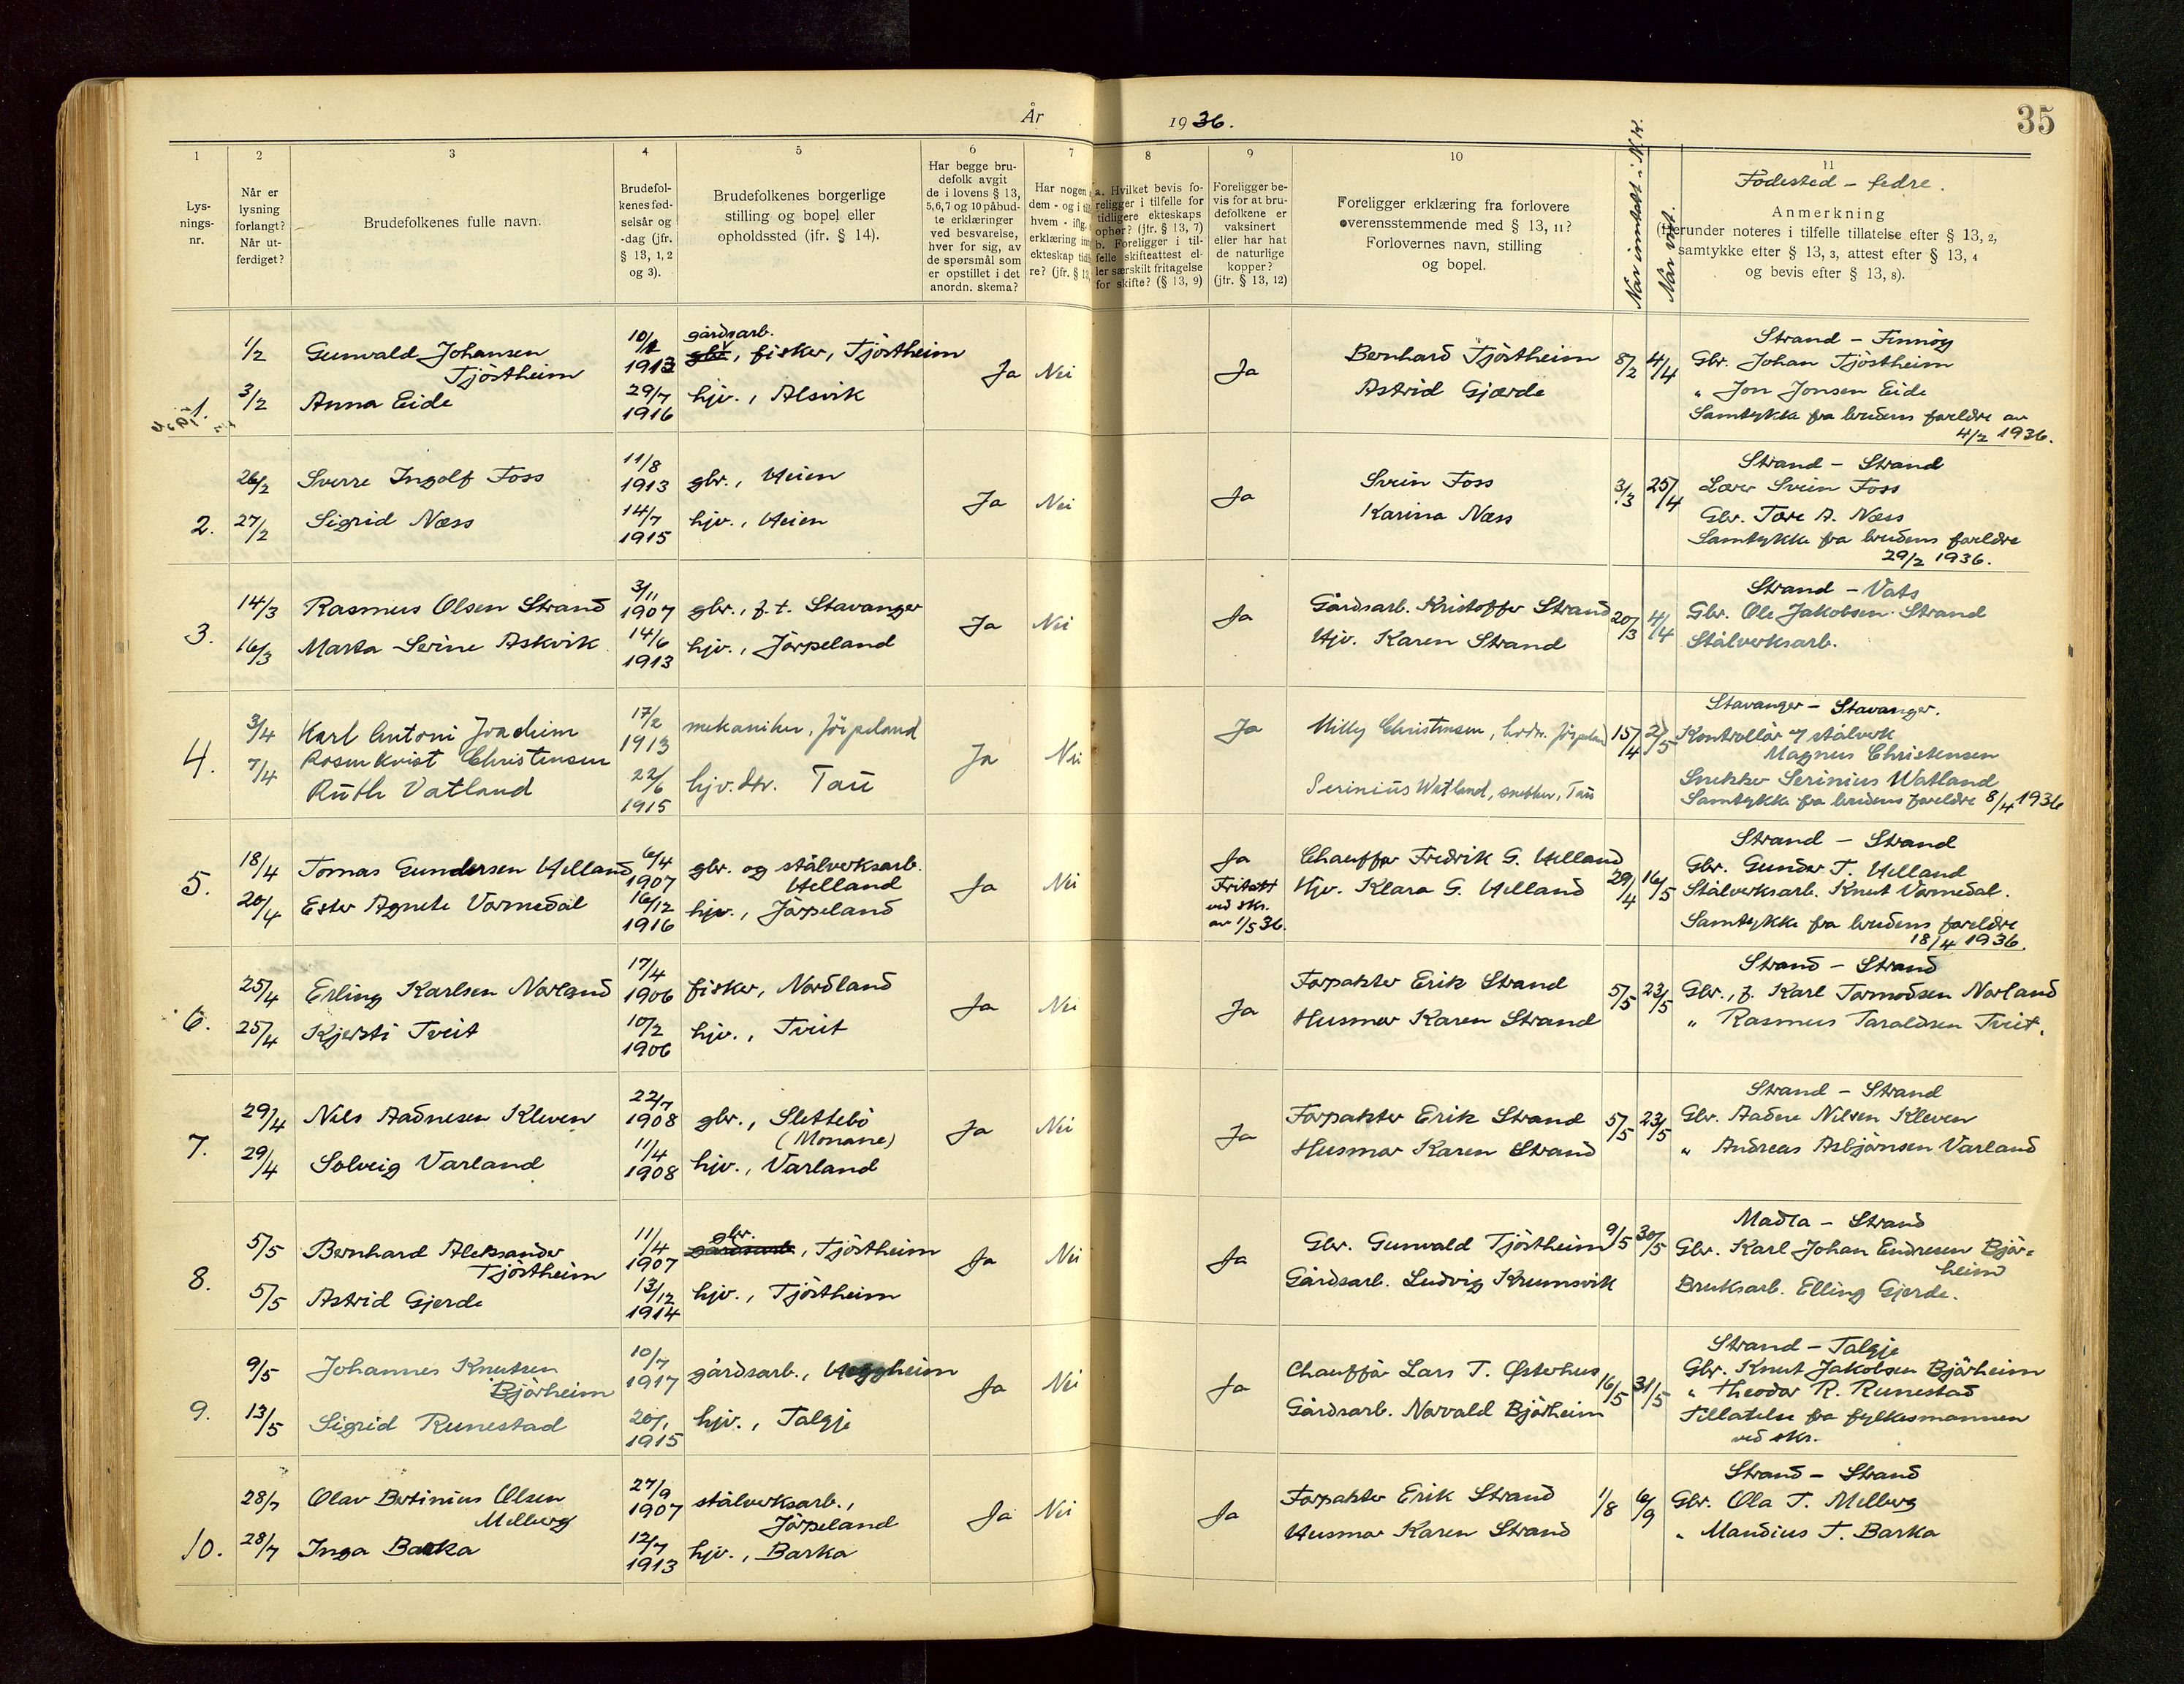 År 1936.
35
1 2 3 4 5 6 7 8 9 10 11
Lysnings-
nr.
Når er
lysning
forlangt?
Når ut-
ferdiget?
Brudefolkenes fulle navn.
Brudefol-
kenes fød-
selsår og
-dag (jfr.
§ 13, 1, 2
og 3).
Brudefolkenes borgerlige
stilling og bopel eller
opholdssted (jfr. § 14).
Har begge bru-
defolk avgit
de i lovens § 13,
5,6,7 og 10 påbud-
te erklæringer
ved besvarelse,
hver for sig, av
de spørsmål som
er opstillet i det
anordn. skema?
Har nogen
dem - og i til
hvem - iflg.
erklæring inn
ekteskap tid
re? (jfr. § 13,
a. Hvilket bevis fo-
religger i tilfelle for
tidligere ekteskaps
ophør? (jfr. § 13, 7)
b. Foreligger i til-
felle skifteattest el-
ler særskilt fritagelse
for skifte? (§ 13, 9)
Foreligger be-
vis for at bru-
defolkene er
vaksinert
eller har hat
de naturlige
kopper?
(jfr. § 13, 12)
Foreligger erklæring fra forlovere
overensstemmende med § 13, 11?
Forlovernes navn, stilling
og bopel.
Når inntatt i N.K.
Når viet.
Fødested - fedre.
Anmerkning
(Herunder noteres i tilfelle tillatelse efter § 13, 2,
samtykke efter § 13, 3, attest efter § 13, 4
og bevis efter § 13, 8).
1.
1/2
3/2
Gunvald Johansen
Tjöstheim
Anna Eide
10/2
1913
29/7
1916
gårdsarb.
gbr., fisker, Tjöstheim
hjv., Alsvik
Ja Nei Ja
Bernhard Tjöstheim
Astrid Gjærde
8/2 4/4
Strand - Finnöy
Gbr. Johan Tjöstheim
" Jon Jonsen Eide
Samtykke fra brudens foreldre av
4/2 1936.
2.
26/2
27/2
Sverre Ingolf Foss
Sigrid Næss
11/8
1913
14/7
1915
gbr., Heien
hjv., Heien
Ja Nei Ja
Svein Foss
Karina Næss
3/3 25/4
Strand - Strand
Lærer Svein Foss
Gbr. Tore A. Næss
Samtykke fra brudens foreldre
29/2 1936.
3.
14/3
16/3
Rasmus Olsen Strand
Marta Serine Askvik
3/11
1907
14/6
1913
gbr., f.t. Stavanger
hjv., Jörpeland
Ja Nei Ja
Gårdsarb. Kristoffer Strand
Hjv. Karen Strand
20/3 4/4
Strand - Vats
Gbr. Ole Jakobsen Strand
Stålverksarb.
4.
3/4
7/4
Karl Antoni Joachim
Rosenkvist Christensen
Ruth Vatland
17/2
1913
22/6
1915
mekaniker, Jörpeland
hjv.dtr. Tau
Ja Nei Ja
Milly Christensen, Jörpeland
Serinius Watland, snekker, Tau
15/4 21/5
Stavanger - Stavanger.
Kontrollör v/ stålverk
Magnus Christensen
Snekker Serinius Watland
Samtykke fra brudens foreldre 8/4 1936
5.
18/4
20/4
Tomas Gundersen Helland
Ester Agnete Varmedal
6/4
1907
16/12
1916
gbr. og stålverksarb.
Helland
hjv., Jörpeland
Ja Nei
Ja
Fritatt
ved skr.
av 1/5 36.
Chauffør Fredrik G. Helland
Hjv. Klara G. Helland
29/4 16/5
Strand - Strand
Gbr. Gunder T. Helland
Stålverksarb. Knut Varmedal.
Samtykke fra brudens foreldre
18/4 1936.
6.
25/4
25/4
Erling Karlsen Norland
Kjersti Tveit
17/4
1906
10/2
1906
fisker, Nordland
hjv., Tveit
Ja Nei Ja
Forpakter Erik Strand
Husmor Karen Strand
5/5 23/5
Strand - Strand
Gbr., f. Karl Tormodsen Norland
" Rasmus Taraldsen Tveit.
7.
29/4
29/4
Nils Aadnesen Kleven
Solveig Varland
22/7
1908
11/4
1908
gbr., Slettebö
(Monane)
hjv., Varland
Ja Nei Ja
Forpakter Erik Strand
Husmor Karen Strand
5/5 23/5
Strand - Strand
Gbr. Aadne Nilsen Kleven
" Andreas Asbjörnsen Varland
8.
5/5
5/5
Bernhard Aleksander
Tjöstheim
Astrid Gjerde
11/4
1907
13/12
1914
gbr.
gårdsarb., Tjöstheim
hjv., Tjöstheim
Ja Nei Ja
Gbr. Gunvald Tjöstheim
Gårdsarb. Ludvig Krumsvik
9/5 30/5
Madla - Strand
Gbr. Karl Johan Endresen Björ-
heim
Bruksarb. Elling Gjerde.
9.
9/5
13/5
Johannes Knutsen
Björheim
Sigrid Runestad
10/7
1917
20/1
1915
gårdsarb., Heggheim
hjv., Talgje
Ja Nei Ja
Chaufför Lars T. Østerhus
Gårdsarb. Norvald Bjørheim
16/5 31/5
Strand - Talgje
Gbr. Knut Jakobsen Bjørheim
" Theodor R. Runestad
Tillatelse fra fylkesmannen
ved skr.
10.
28/7
28/7
Olav Bertinius Olsen
Melberg
Inga Barka
27/9
1907
12/7
1913
stålverksarb.,
Jörpeland
hjv., Barka
Ja Nei Ja
Forpakter Erik Strand
Husmor Karen Strand
1/8 6/9
Strand - Strand
Gbr. Ola T. Melberg
" Mandius T. Barka